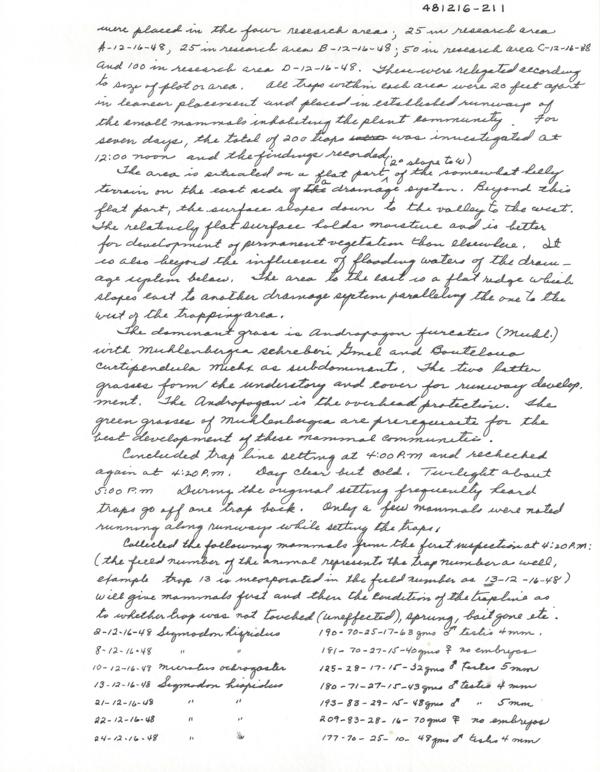 481216-211
were placed in the four research areas; 25 in research area
A-12-16-48, 25 in research area B-12-16-48; 50 in research area C-12-16-48
and 100 in research area D-12-16-48. These were relegated according
to size of plot or area. All traps within each area were 20 feet apart
in leaneer placement and placed in established runways of
the small mammals inhabiting the plant community. For
seven days, the total of 200 traps was investigated at
12:00 noon and the findings recorded.
The area is situated on a flat part (2° slope to W) of the somewhat hilly
terrain on the east side of a drainage system. Beyond this
flat part, the surface slopes down to the valley to the west.
The relatively flat surface holds moisture and is better
for development of permanent vegetation than elsewhere. It
is also beyond the influence of flooding waters of the drain-
age system below. The area to the east is a flat ridge which
slopes east to another drainage system paralleling the one to the
west of the trapping area.
The dominant grass is Andropogon furcatus (Muhl.)
with Muhlenbergia schreberi Gmel and Bouteloua
curtipendula Michx as subdominant. The two latter
grasses form the understory and cover for runway develop-
ment. The Andropogan is the overhead protection. The
green grasses of Muhlenbergia are prerequisite for the
best development of these mammal communities.
Concluded trap line setting at 4:00 P.M and rechecked
again at 4:20 P.M. Day clear but cold. Twilight about
5:00 P.M During the original setting frequently heard
traps go off one trap back. Only a few mammals were noted
running along runways while setting the traps.
Collected the following mammals from the first inspection at 4:20 P.M:
(the field number of the animal represents the trap number as well,
example trap 13 is incorporated in the field number as 13-12-16-48)
will give mammals first and then the condition of the trapline as
to whether trap was not touched (uneffected), sprung, bait gone etc.
2-12-16-48 Sigmodon hispidus 190-70-25-17-63 gms ♂ testis 4 mm.
8-12-16-48 " " 181-70-27-15-40 gms ♀ no embryos
10-12-16-48 Microtus ochrogaster 125-28-17-15-32 gms ♂ Testes 5 mm
13-12-16-48 Sigmodon hispidus 180-71-27-15-43 gms ♂ testis 4 mm
21-12-16-48 " " 193-83-29-15-48 gms ♂ " 5 mm
22-12-16-48 " " 209-83-28-16-70 gms ♀ no embryos
24-12-16-48 " " 177-70-25-10-48 gms ♂ testis 4 mm